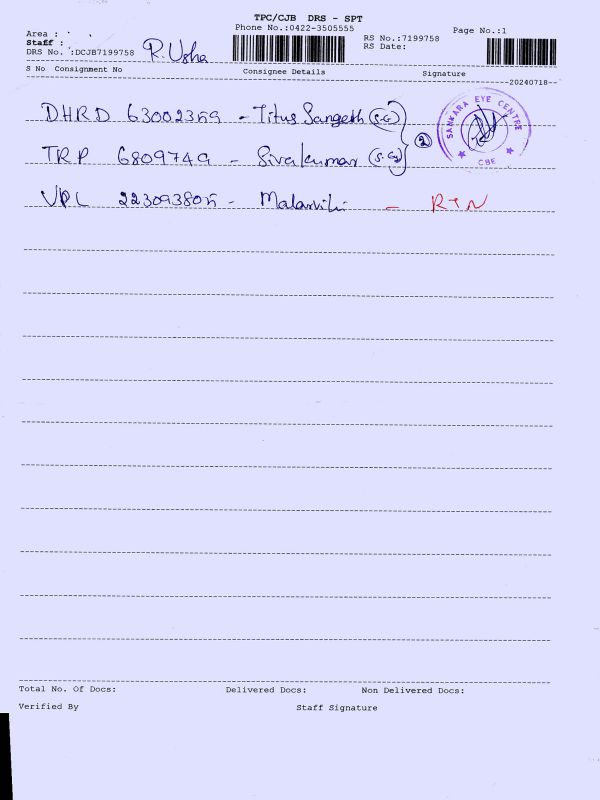 TPC/CJB DRS - SPT
Phone No.:0422-3505555
Page No.:1
Area :
RS No.:7199758
Staff :
RS Date:
DRS No. :DCJB7199758
R. Usha
S No Consignment No Consignee Details Signature
20240718
DHRD 63002359 - Titus Sangeeth (S.G)
SANKARA EYE CENTRE
CBE
2
TRP 6809749 - Sivakumar (S.G)
VPL 223093805 - Malarvili - RTN
Total No. Of Docs: Delivered Docs: Non Delivered Docs:
Verified By Staff Signature